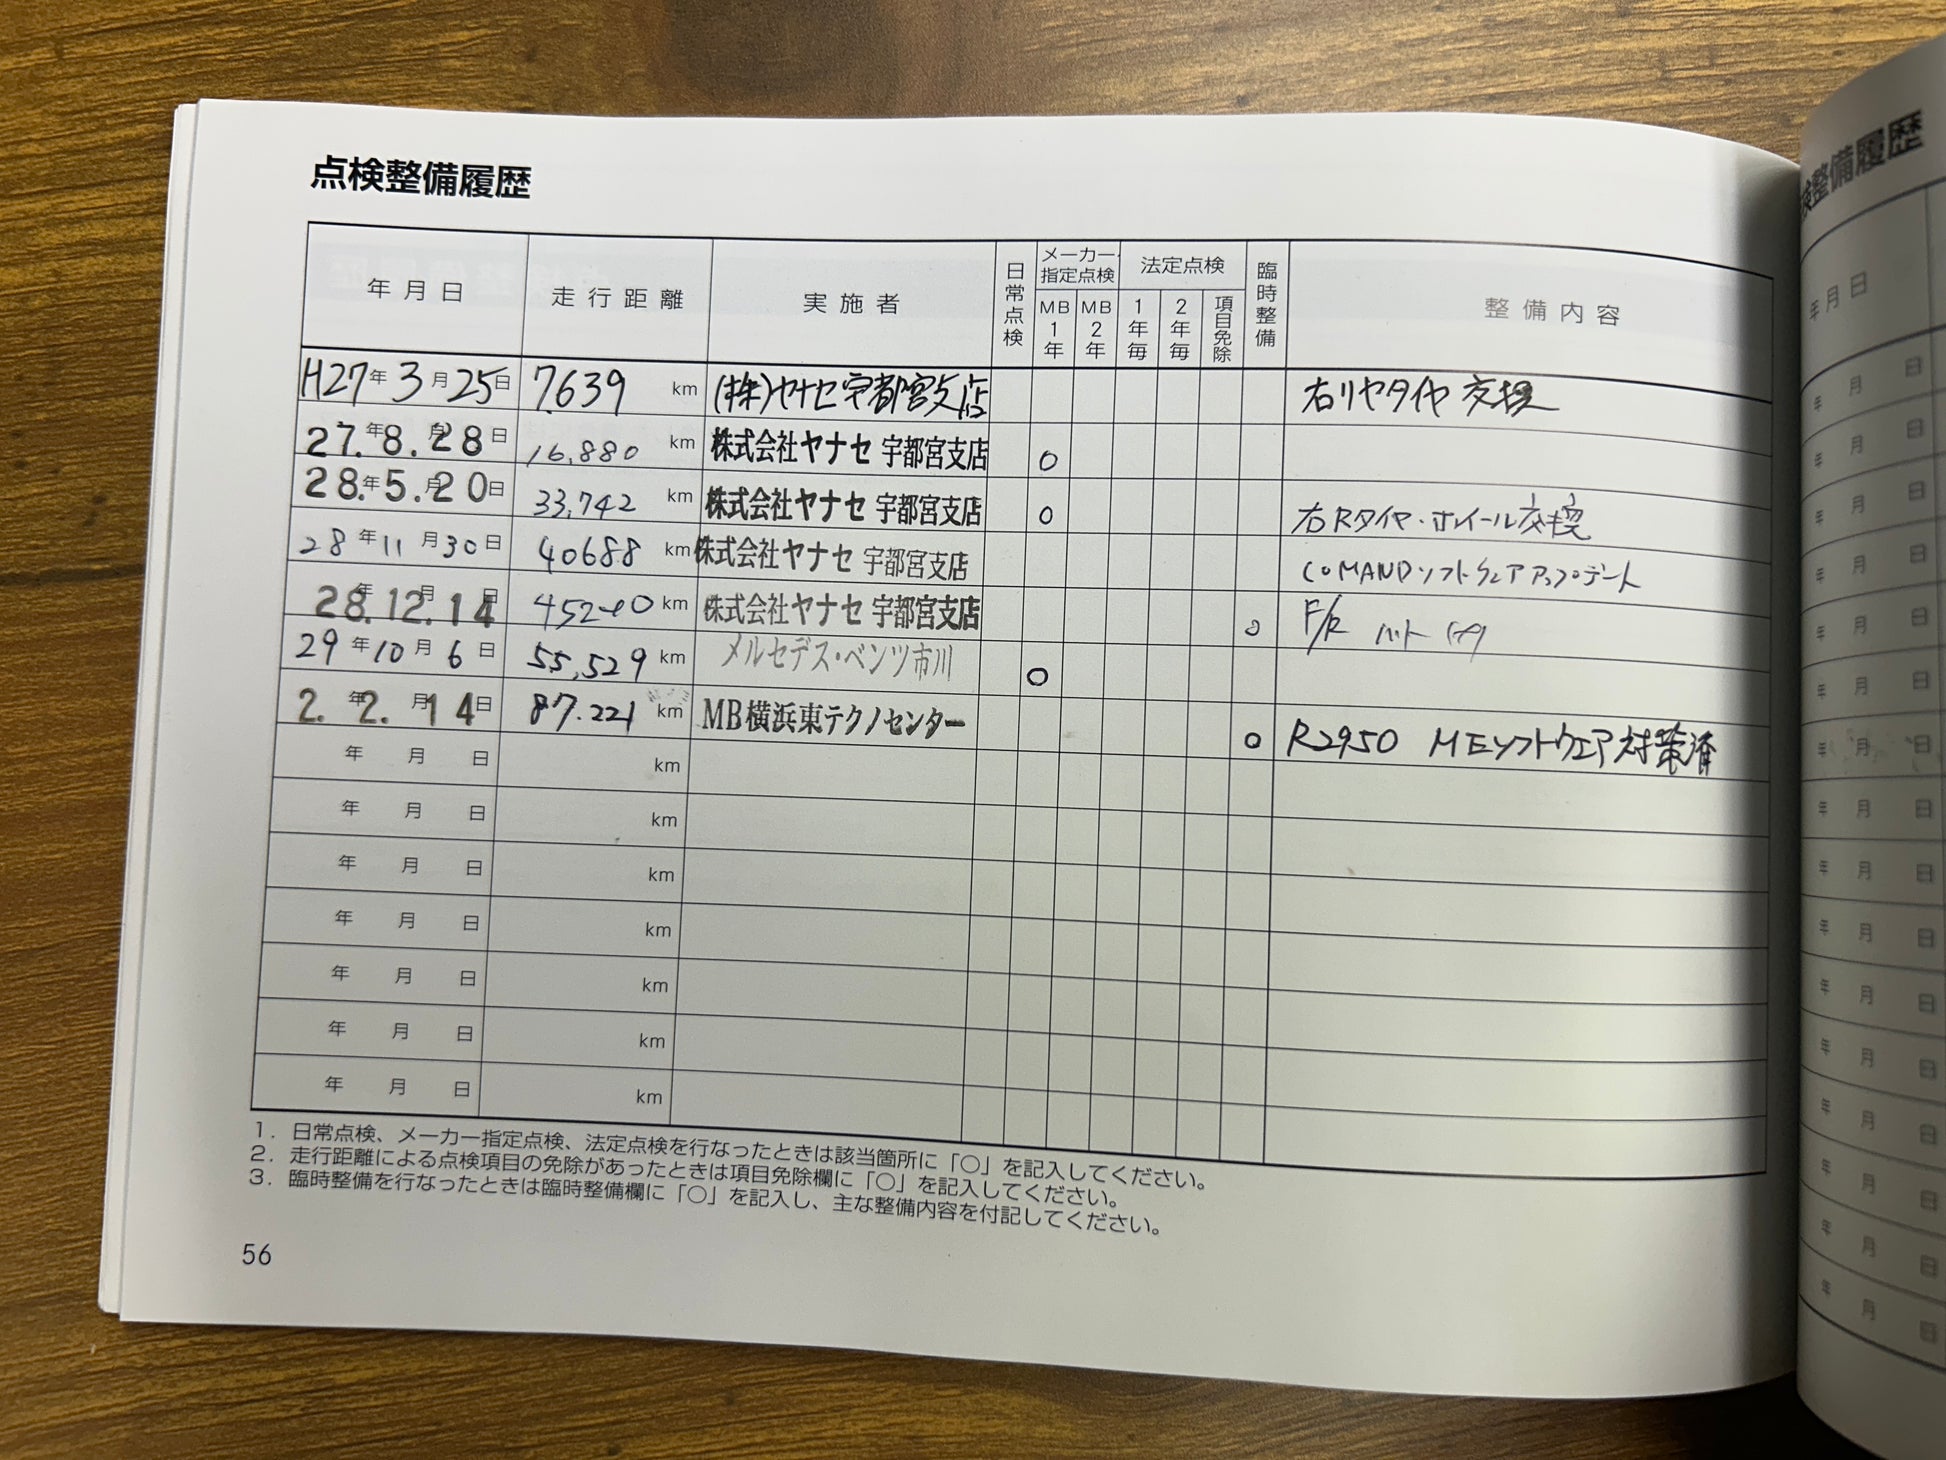 点検整備履歴
年月日 走行距離 実施者 日常点検 メーカー指定点検 MB1年 MB2年 法定点検 1年毎 2年毎 項目免除 臨時整備 整備内容
H27年3月25日 7,639 km (株)ヤナセ宇都宮支店 右リヤタイヤ 交換
27.年8.月28日 16,880 km 株式会社ヤナセ 宇都宮支店 ○
28.年5.月20日 33,742 km 株式会社ヤナセ 宇都宮支店 ○ 右Rタイヤ・ホイール交換
28年11月30日 40688 km 株式会社ヤナセ 宇都宮支店 COMANDソフトウェアアップデート
28.年12.月14日 km 株式会社ヤナセ 宇都宮支店 ○ F/R
29年10月6日 55,529 km メルセデス・ベンツ市川 ○
2.年2.月14日 87.221 km MB横浜東テクノセンター ○ R2950 MEソフトウェア対策済
年 月 日 km
年 月 日 km
年 月 日 km
年 月 日 km
年 月 日 km
年 月 日 km
年 月 日 km
1. 日常点検、メーカー指定点検、法定点検を行なったときは該当箇所に「○」を記入してください。
2. 走行距離による点検項目の免除があったときは項目免除欄に「○」を記入してください。
3. 臨時整備を行なったときは臨時整備欄に「○」を記入し、主な整備内容を付記してください。
56
検整備履歴
年月日
年 月 日
年 月 日
年 月 日
年 月 日
年 月 日
年 月 日
年 月 日
年 月 日
年 月 日
年 月 日
年 月 日
年 月 日
年 月 日
年 月 日
年 月 日
年 月 日